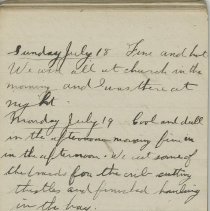 Sunday July 18 Fine and hot
We were all at church in the
morning and I was there at
night.
Monday July 19 Cool and dull
in the afternoon morning fine in
in the afternoon. We cut some of
the weeds for the cutting
thistles and finished hauling
in the hay.